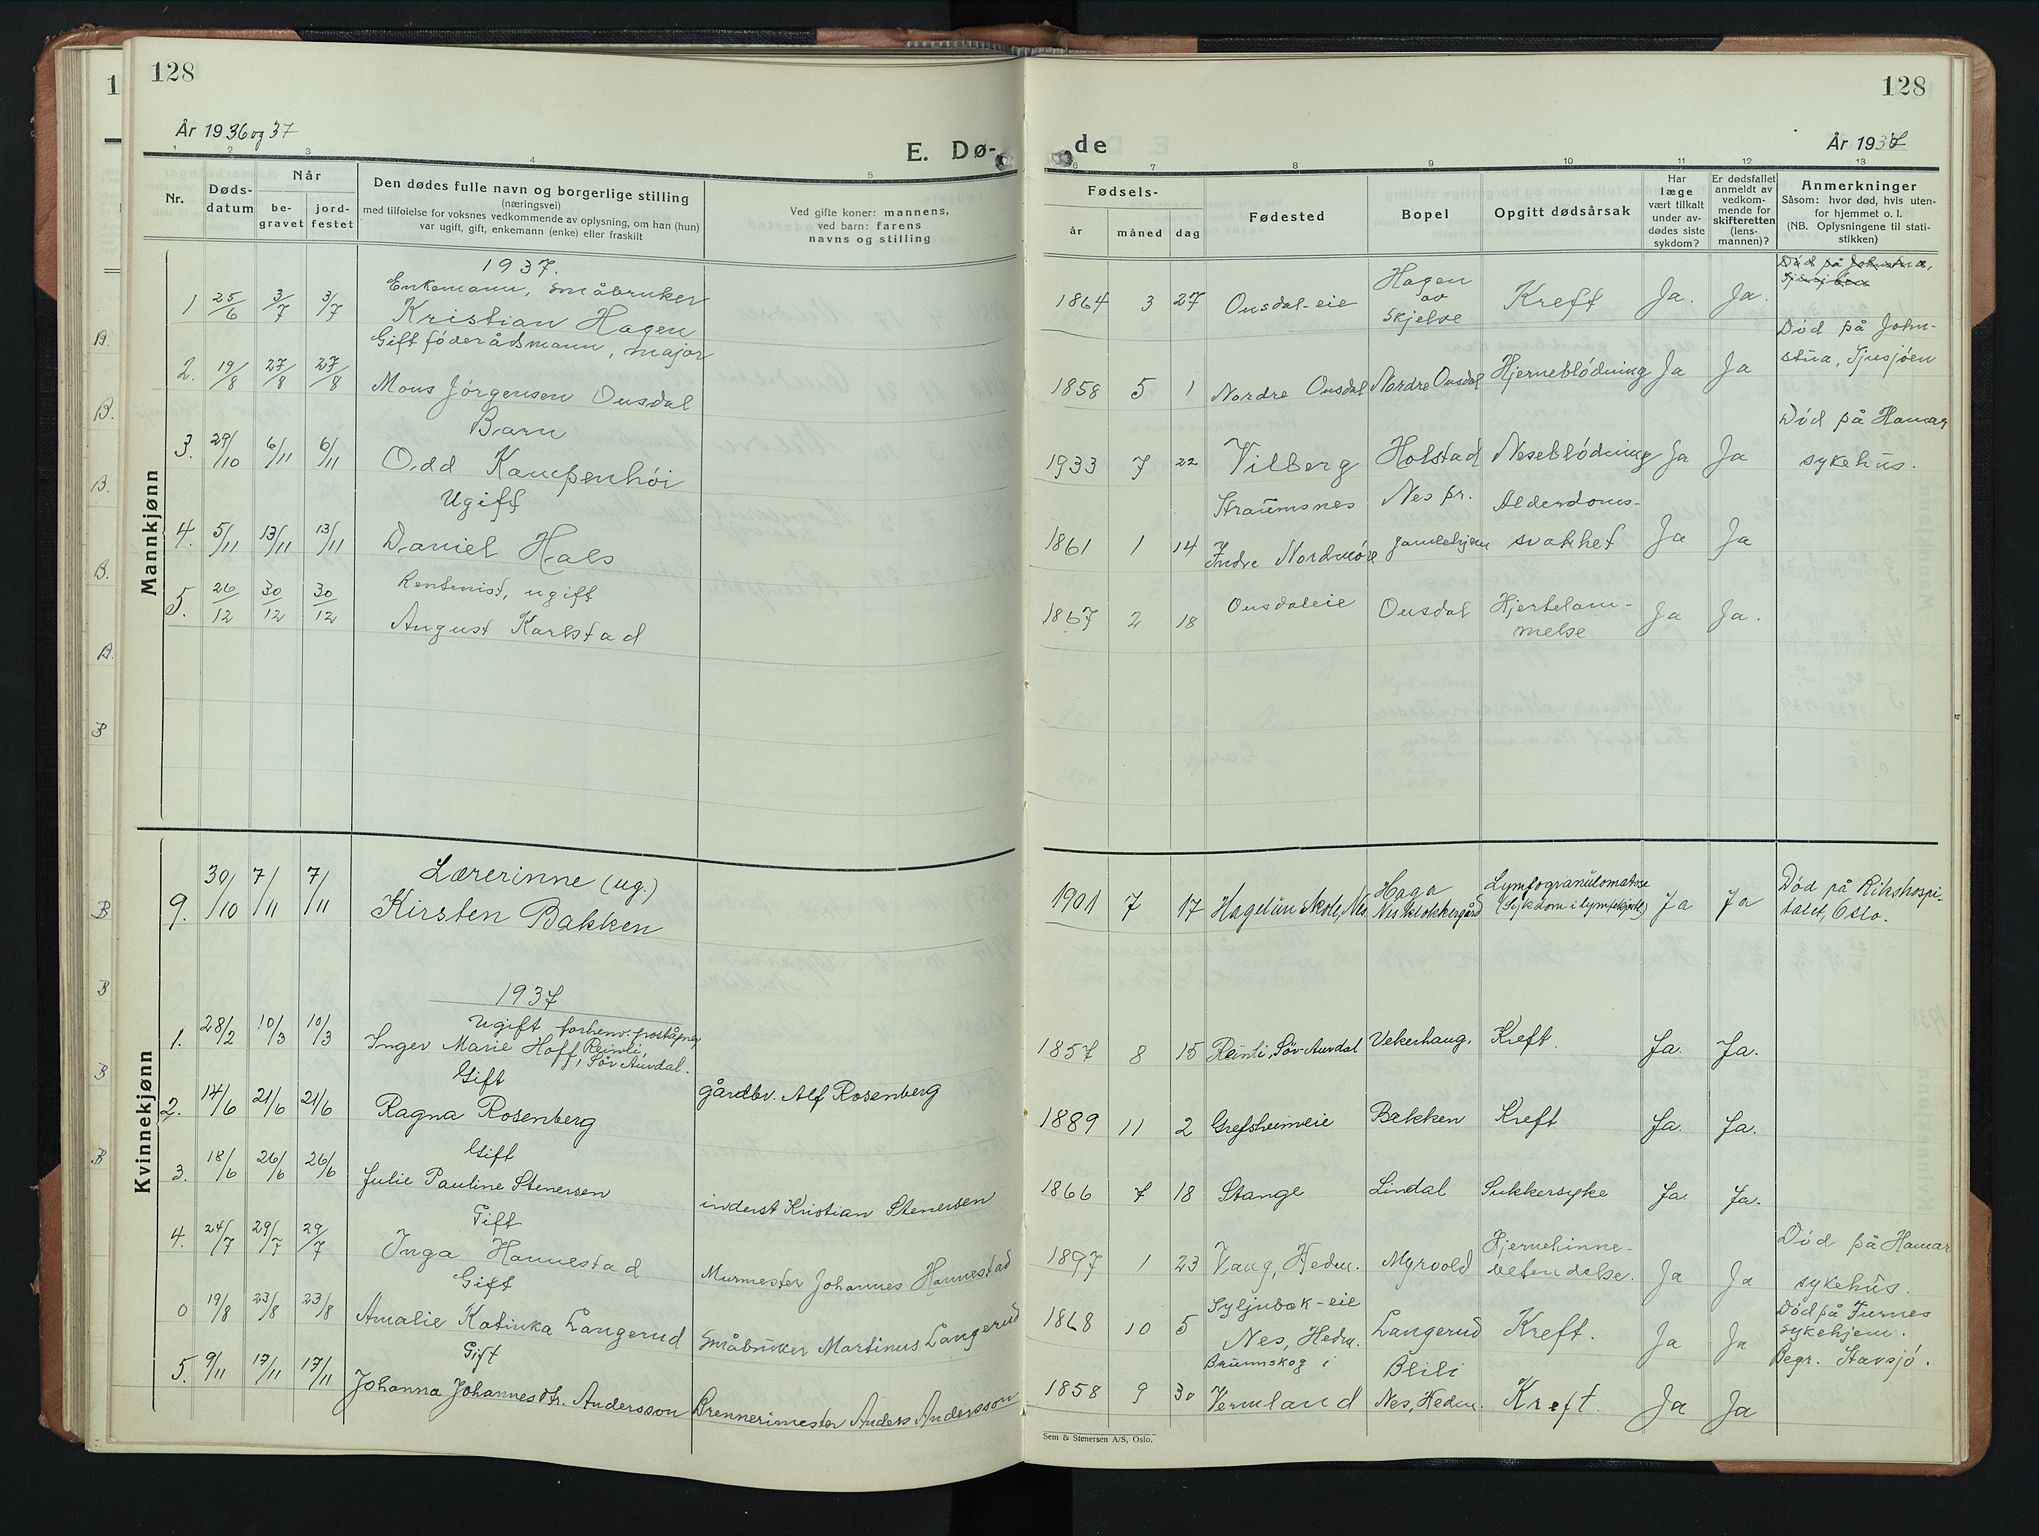 128
År 1936 og 37
E. Dø-
Nr.
Døds-
datum
Når
be-
gravet
jord-
festet
Den dødes fulle navn og borgerlige stilling
(næringsvei)
med tilføielse for voksnes vedkommende av oplysning, om han (hun)
var ugift, gift, enkemann (enke) eller fraskilt
Ved gifte koner: mannens,
ved barn: farens
navns og stilling
Mannkjønn
1937.
Enkemann, småbruker
1 25/6 3/7 3/7 Kristian Hagen
Gift føderådsmann, major
2. 19/8 27/8 27/8 Mons Jørgensen Ousdal
Barn
3. 29/10 6/11 6/11 Odd Kampenhøi
Ugift
4. 5/11 13/11 13/11 Daniel Hals
Rentenist, ugift
5. 26/12 30/12 30/12 August Karlstad
Kvinnekjønn
Lærerinne (ug.)
9. 30/10 7/11 7/11 Kirsten Bakken
1937
Ugift forhenv. poståpner
1. 28/2 10/3 10/3 Inger Marie Hoff, Reinli, Sør-Aurdal.
Gift
2. 14/6 21/6 21/6 Ragna Rosenberg gårdbr. Alf Rosenberg
Gift
3. 18/6 26/6 26/6 Julie Pauline Stenersen inderst Kristian Stenersen
Gift
4. 24/7 29/7 29/7 Inga Hannestad Murmester Johannes Hannestad
Gift
0 19/8 23/8 23/8 Amalie Katinka Langerud Småbruker Martinus Langerud
Gift
5. 9/11 17/11 17/11 Johanna Johannesdtr. Andersson Brennerimester Anders Andersson
128
de
År 1937
Fødsels-
år
måned
dag
Fødested
Bopel
Opgitt dødsårsak
Har
læge
vært tilkalt
under av-
dødes siste
sykdom?
Er dødsfallet
anmeldt av
vedkom-
mende for
skifteretten
(lens-
mannen)?
Anmerkninger
Såsom: hvor død, hvis uten-
for hjemmet o. l.
(NB. Oplysningene til stati-
stikken)
1864 3 27 Ousdal-eie Hagen av Skjelse Kreft Ja. Ja.
Død på John-
stua, Sjusjøen
1858 5 1 Nordre Ousdal Nordre Ousdal Hjerneblødning Ja Ja
Død på Hamar
sykehus.
1933 7 22 Vilberg Holstad Neseblødning Ja Ja
Straumsnes Nes pr. Alderdoms-
1861 1 14 Indre Nordmøre gamlehjem svakhet Ja Ja
1867 2 18 Ousdaleie Ousdal Hjertelam-
melse Ja Ja.
1901 7 17 Hagelun skole, Nes Haga Nes klokkergård Lymfogranulomatose (Sykdom i lymfekjertl.) Ja Ja Død på Rikshospi-
talet, Oslo.
1857 8 15 Reinli, Sør-Aurdal Vekerhaug, Kreft. Ja. Ja.
1889 11 2 Grefsheimeie Bakken Kreft Ja. Ja.
1866 7 18 Stange Lindal Sukkersyke Ja. Ja.
1897 1 23 Vang, Hedm. Myrvold Hjernehinne-
betendelse. Ja Ja Død på Hamar
sykehus.
1868 10 5 Syljubæk-eie
Nes, Hedm. Langerud Kreft. Ja Ja Død på Furnes
sykehjem.
Begr. Stavsjø.
1858 9 30 Brunnskog i
Vermland Blili
Nes, Hedm. Kreft. Ja Ja
Sem & Stenersen A/S, Oslo.